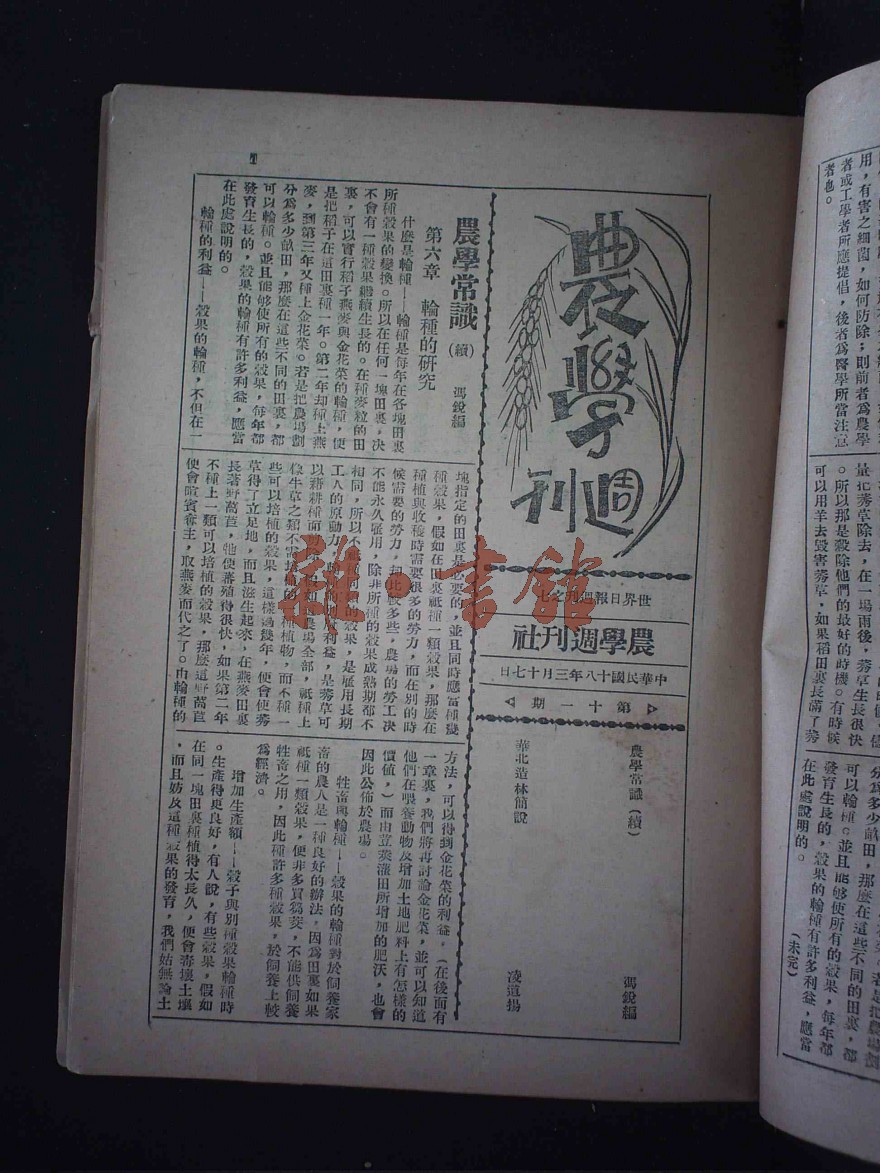 農學週刊
世界日報週刊之七
農學週刊社
中華民國十八年三月十七日
第十一期
農學常識(續) 馮銳編
華北造林簡說 凌道揚
農學常識(續) 馮銳編
第六章 輪種的研究
什麼是輪種——輪種是每年在各塊田裏
所種穀果的變換。所以在任何一塊田裏,决
不會有一種穀果繼續生長的。在種麥粒的田
裏,可以實行稻子燕麥與金花菜的輪種,便
是把稻子在這田裏種一年。第二年却種上燕
麥,到第三年又種上金花菜。若是把農場劃
分為多少畝田,那麼在這些不同的田裏,都
可以輪種。並且能够使所有的穀果,每年都
發育生長的,穀果的輪種有許多利益,應當
在此處說明的。
輪種的利益——穀果的輪種,不但在一
塊指定的田裏是必要的,並且同時應當種幾
種穀果,假如在田裏祗種一類穀果,那麼在
種植與收穫時需要很多的勞力,而在別的時
候需要的勞力,却比較多些,農場的勞工决
不能永久雇用,除非所種的穀果成熟期都不
相同,所以不
雇用長期
工人的原動力
利益,是莠草可
以藉耕種而
農場全部,祗種上
像牛草之類不需
種植物,而不種一
些可以培植的穀果,這樣過幾年,便會使莠
草得了立足地,而且滋生起來,在燕麥田裏
長著野萵苣,牠使蕃殖得很快,如果第二年
不種上一類可以培植的穀果,那麼這野萵苣
便會喧賓奪主,取燕麥而代之了。由輪種的
方法,可以得到金花菜的利益,(在後面有
一章裏,我們將再討論金花菜,並可以知道
他們在喂養動物及增加土地肥料上有怎樣的
價值,)而由荳莢灌田所增加的肥沃,也會
因此公佈於農場。
牲畜與輪種——穀果的輪種對於飼養家
畜的農人是一種良好的辦法,因為田裏如果
祗種一類穀果,便非多買芻茭,不能供飼養
牲畜之用,因此種許多種穀果,於飼養上較
為經濟。
增加生產額——穀子與別種穀果輪種時
。生產得更良好,有人說,有些穀果,假如
在同一塊田裏種植得太長久,便會毒壞土壤
,而且妨及這種穀果的發育,我們姑無論土
用,有害之細菌,如何防除;則前者為農學
者或工學者所應提倡,後者為醫學所當注意
者也。
量把莠草除去,在一場雨後,莠草生長很快
。所以那是榖除他們的最好的時機。有時候
可以用羊去毀害莠草,如果稻田裏長滿了莠
分為多少畝田,那麼在這些不同的田裏,都
可以輪種。並且能够使所有的穀果,每年都
發育生長的,穀果的輪種有許多利益,應當
在此處說明的。
(未完)
雜·書館